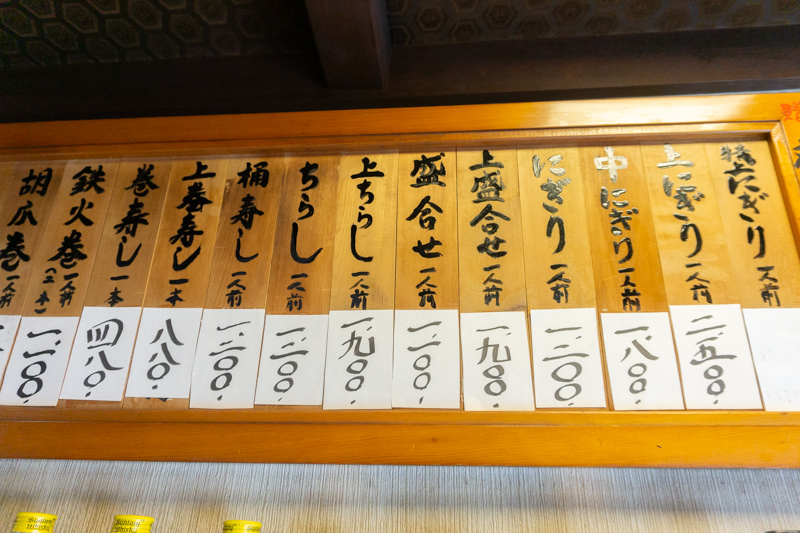 特上にぎり 一人前
上にぎり 一人前
二、五〇〇
中にぎり 一人前
一、八〇〇
にぎり 一人前
一、三〇〇
上盛合せ 一人前
一、九〇〇
盛合せ 一人前
一、二〇〇
上ちらし 一人前
一、九〇〇
ちらし 一人前
一、三〇〇
桶寿し 一人前
一、三〇〇
上巻寿し 一本
八八〇
巻寿し 一本
四八〇
鉄火巻 一人前
一、二〇〇
胡瓜巻 一人前
Suntory Whisky
Suntory Whisky